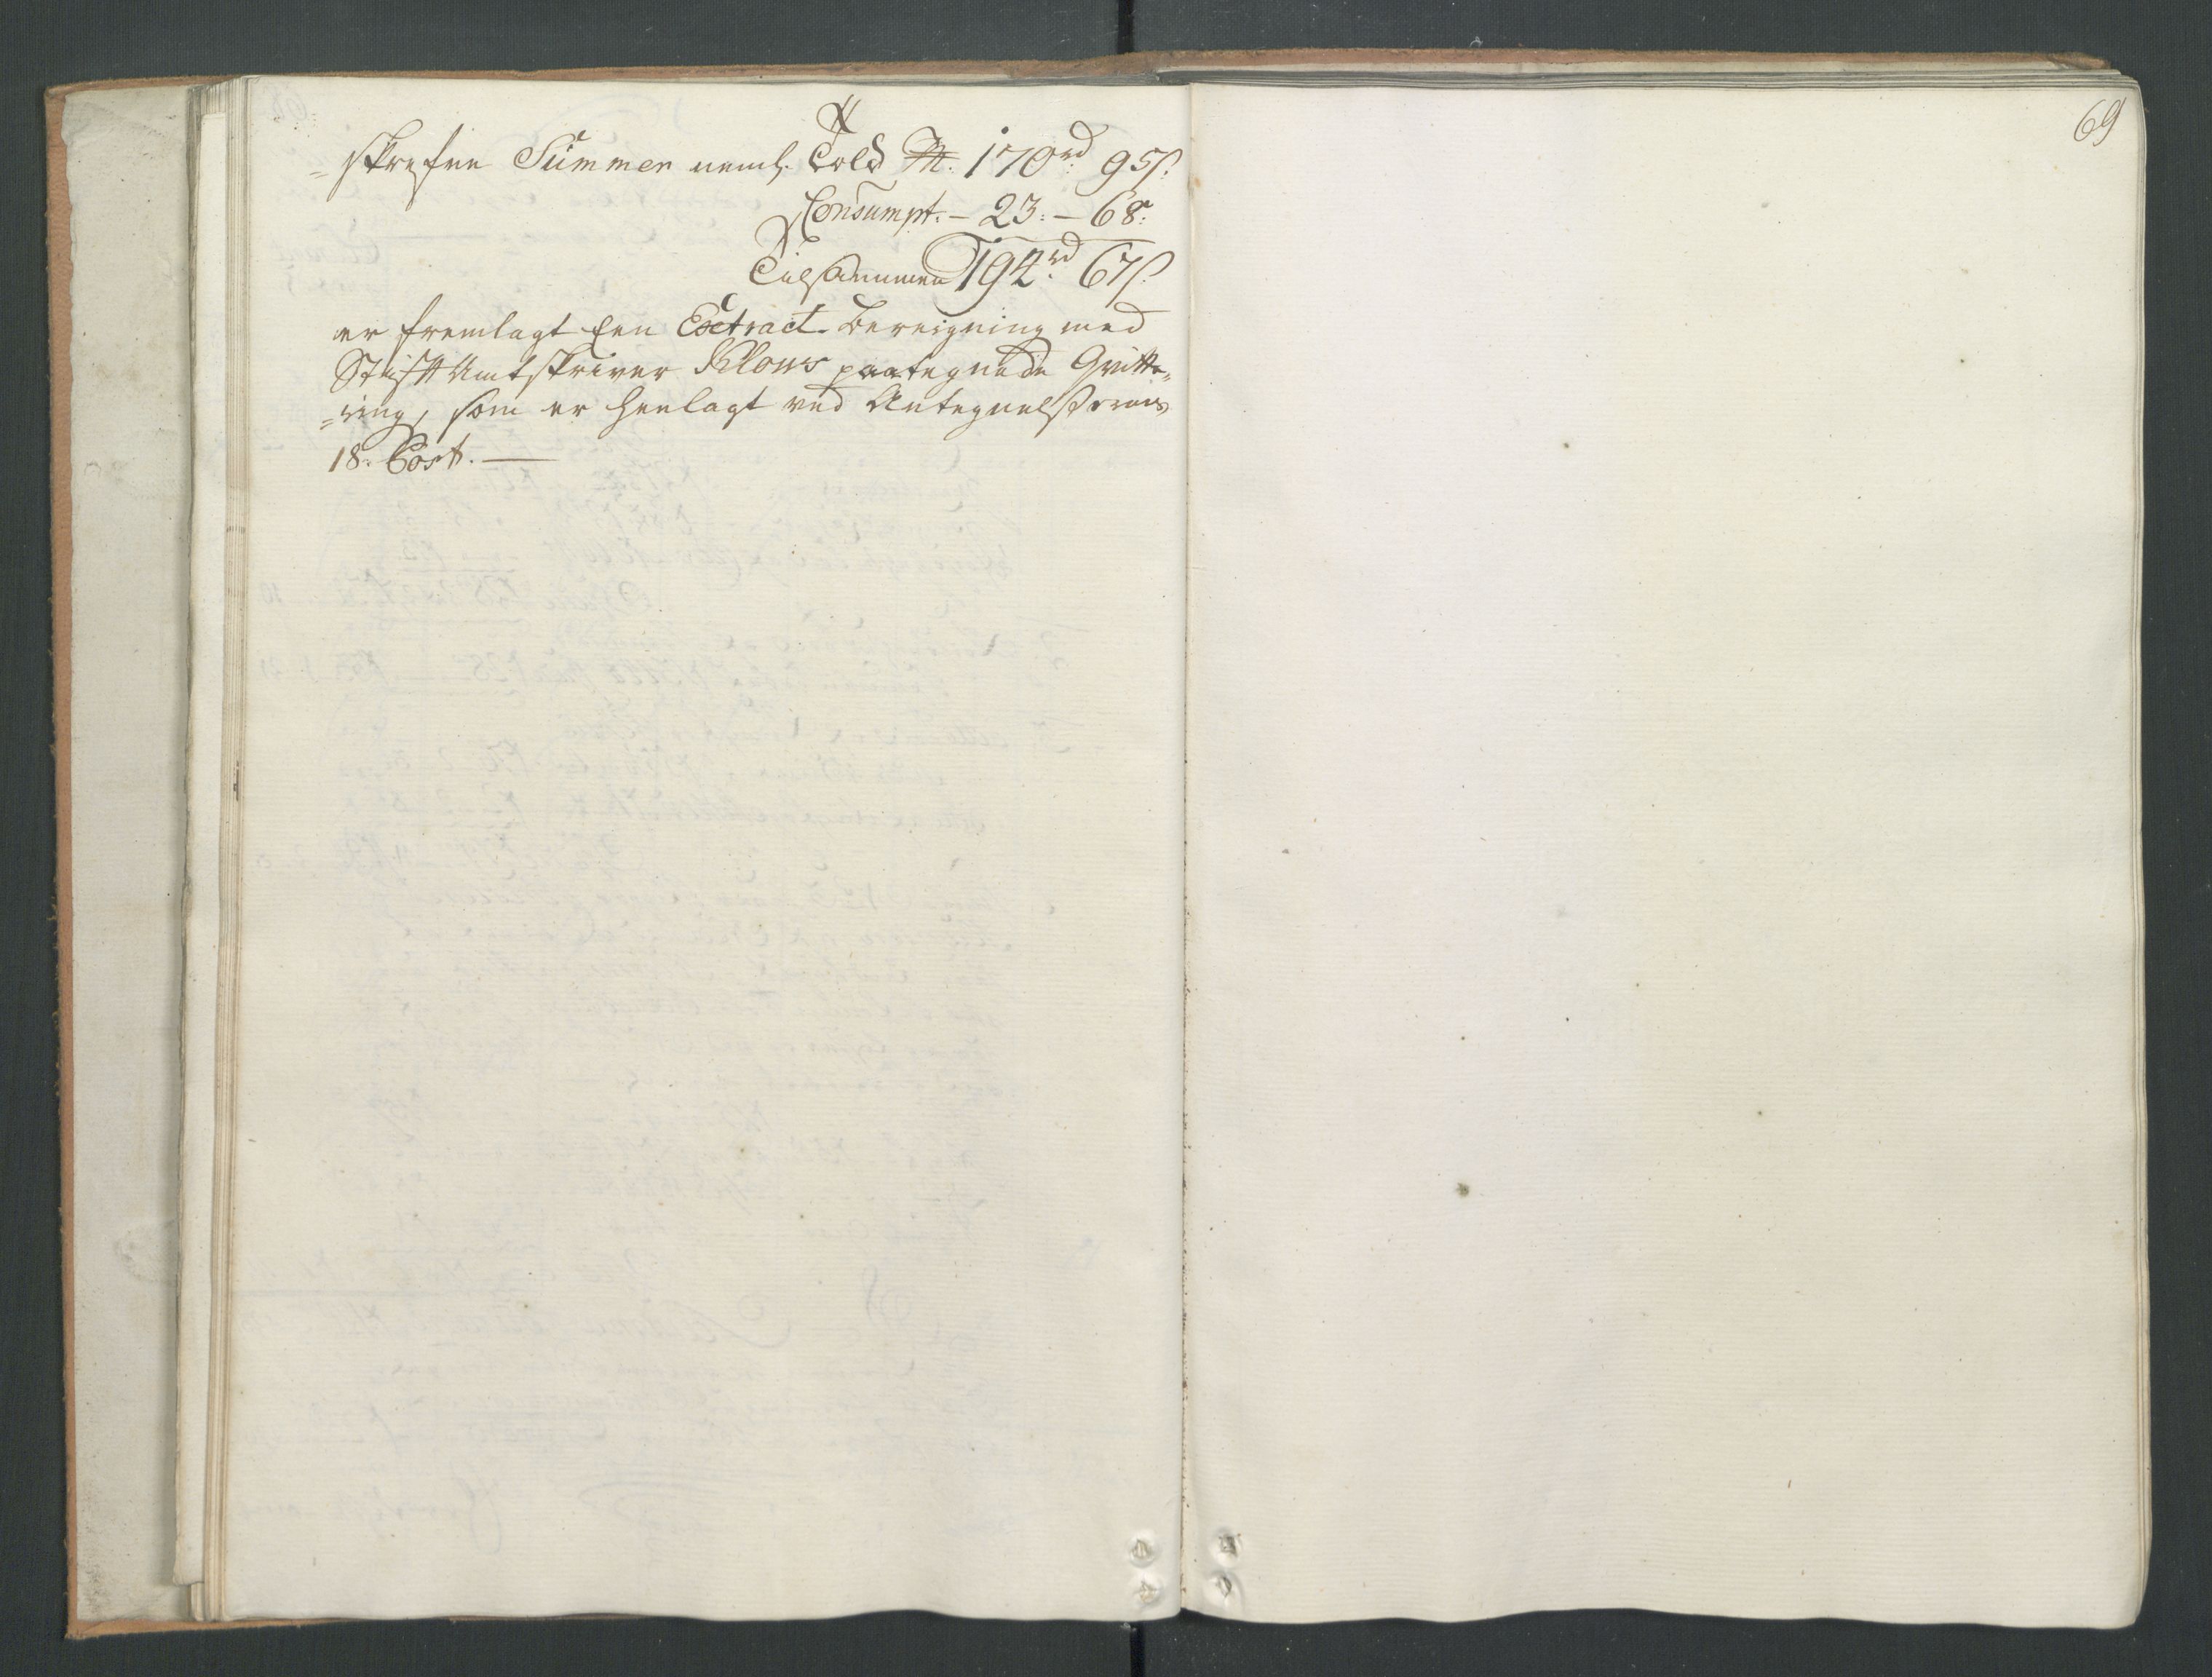 =skrefne Summer neml. Told 170rd 95s.
Consumpt. – 23: – 68:
Tilsammen 194rd 67s.
er fremlagt een Extract-Bereigning med
Stift Amtskriver Klows paategnede Qvitte=
=ring, som er henlagt ved Antegnelsernes
18: Post. —
69